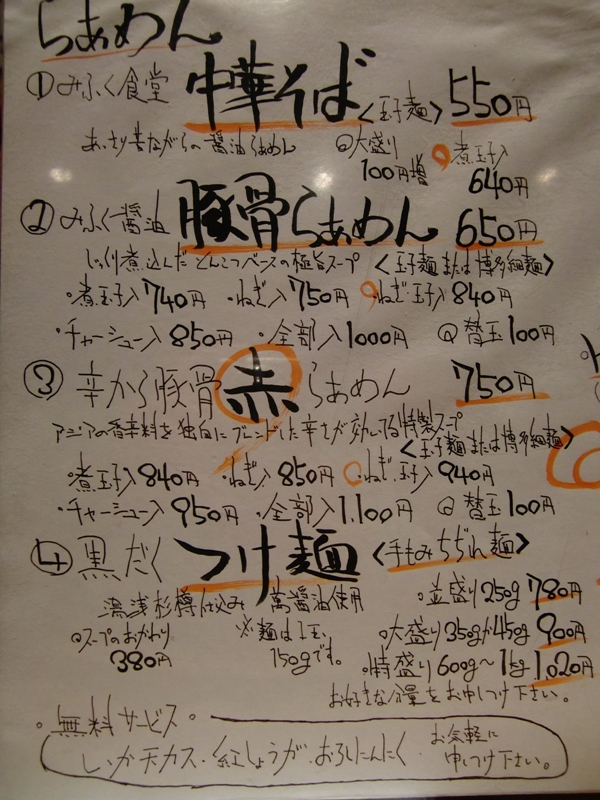 らぁめん
①みふく食堂 中華そば <玉子麺> 550円
あっさり昔ながらの醤油らぁめん ◎大盛り 100円増 煮玉子入 640円
②みふく醤油 豚骨らぁめん 650円
じっくり煮込んだとんこつベースの極旨スープ <玉子麺または博多細麺>
・煮玉子入740円 ・ねぎ入750円 ・ねぎ・玉子入840円
・チャーシュー入850円 ・全部入1000円 ◎替玉100円
③辛から豚骨 赤らぁめん 750円
アジアの香辛料を独自にブレンドした辛さが効いてる特製スープ
<玉子麺または博多細麺>
・煮玉子入840円 ・ねぎ入850円 ・ねぎ・玉子入940円
・チャーシュー入950円 ・全部入1.100円 ◎替玉100円
④黒だく つけ麺 <手もみちぢれ麺>
湯浅杉樽仕込み 萬醤油使用 ・並盛り250g 780円
◎スープのおかわり 380円 ※麺は1玉、150gです。 ・大盛り350g/450g 900円
・特盛り600g〜1kg 1.020円
お好きな分量をお申しつけ下さい。
・無料サービス・
いか天カス・紅しょうが・おろしにんにく お気軽に申しつけ下さい。